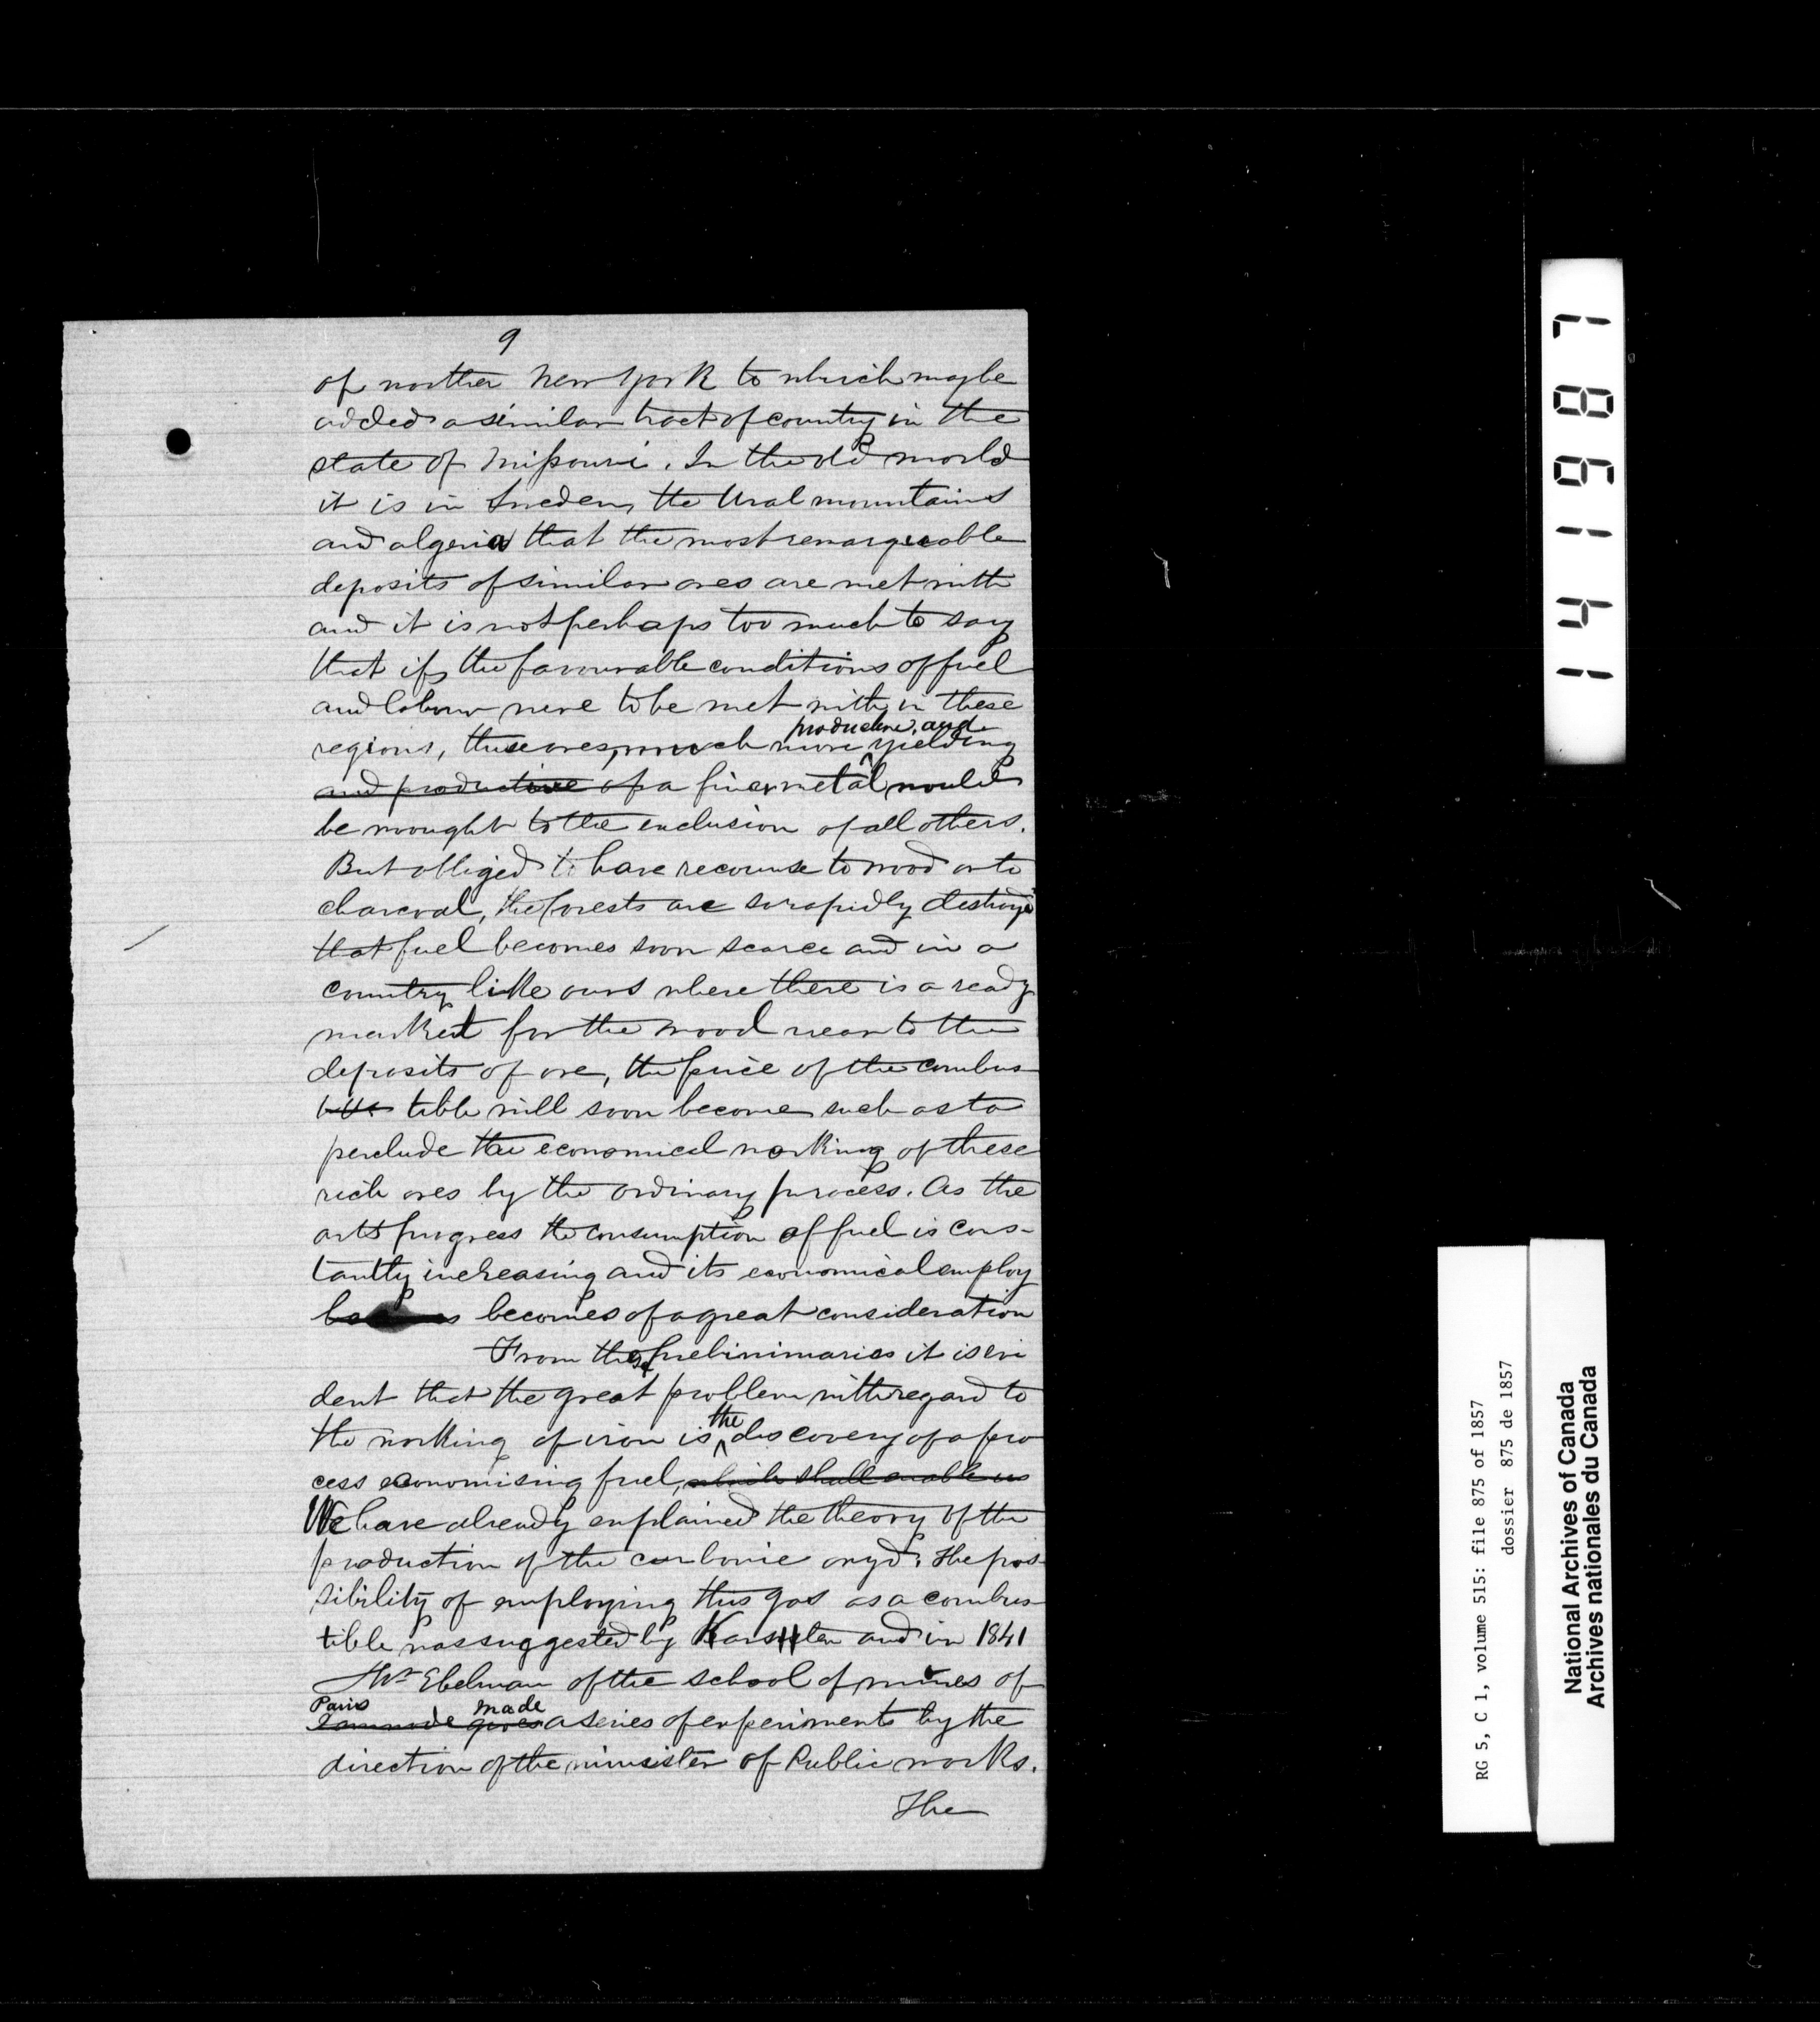 9
of norther New York to which maybe
added a similar tract of country in the
state of Missouri. In the old world
it is in Sweden, the Ural mountains
and algeria that the most remarqueable
deposits of similar ores are met with
and it is not perhaps too much to say
that if the favourable conditions of fuel
and labour were to be met with in these
productive and
regions, these ores, much more yielding
and productive of a finer metal would
be wrought to the exclusion of all others.
But obliged to have recourse to wood or to
charcoal, the forests are so rapidly destroyed
that fuel becomes soon scarce and in a
country like ours where there is a ready
market for the wood near to the
deposits of ore, the price of the combus
tible will soon become such as to
perclude the economical working of these
rich ores by the ordinary process. As the
arts progress the consumption of fuel is cons-
tantly increasing and its economical employ
becomes of a great consideration
From these prelinimaries it is evi
dent that the great problem with regard to
the
the working of iron is discovery of a pro
cess economising fuel, which shall enable us
We have already explained the theory of the
production of the carbonic oxyd. The pos-
sibility of employing this gas as a combus-
tible was suggested by Karsten and in 1841
Mr Ebelman of the school of mines of
Paris made
gives a series of experiments by the
direction of the minister of Public works.
The
141987
RG 5, C 1, volume 515: file 875 of 1857
dossier 875 de 1857
National Archives of Canada
Archives nationales du Canada